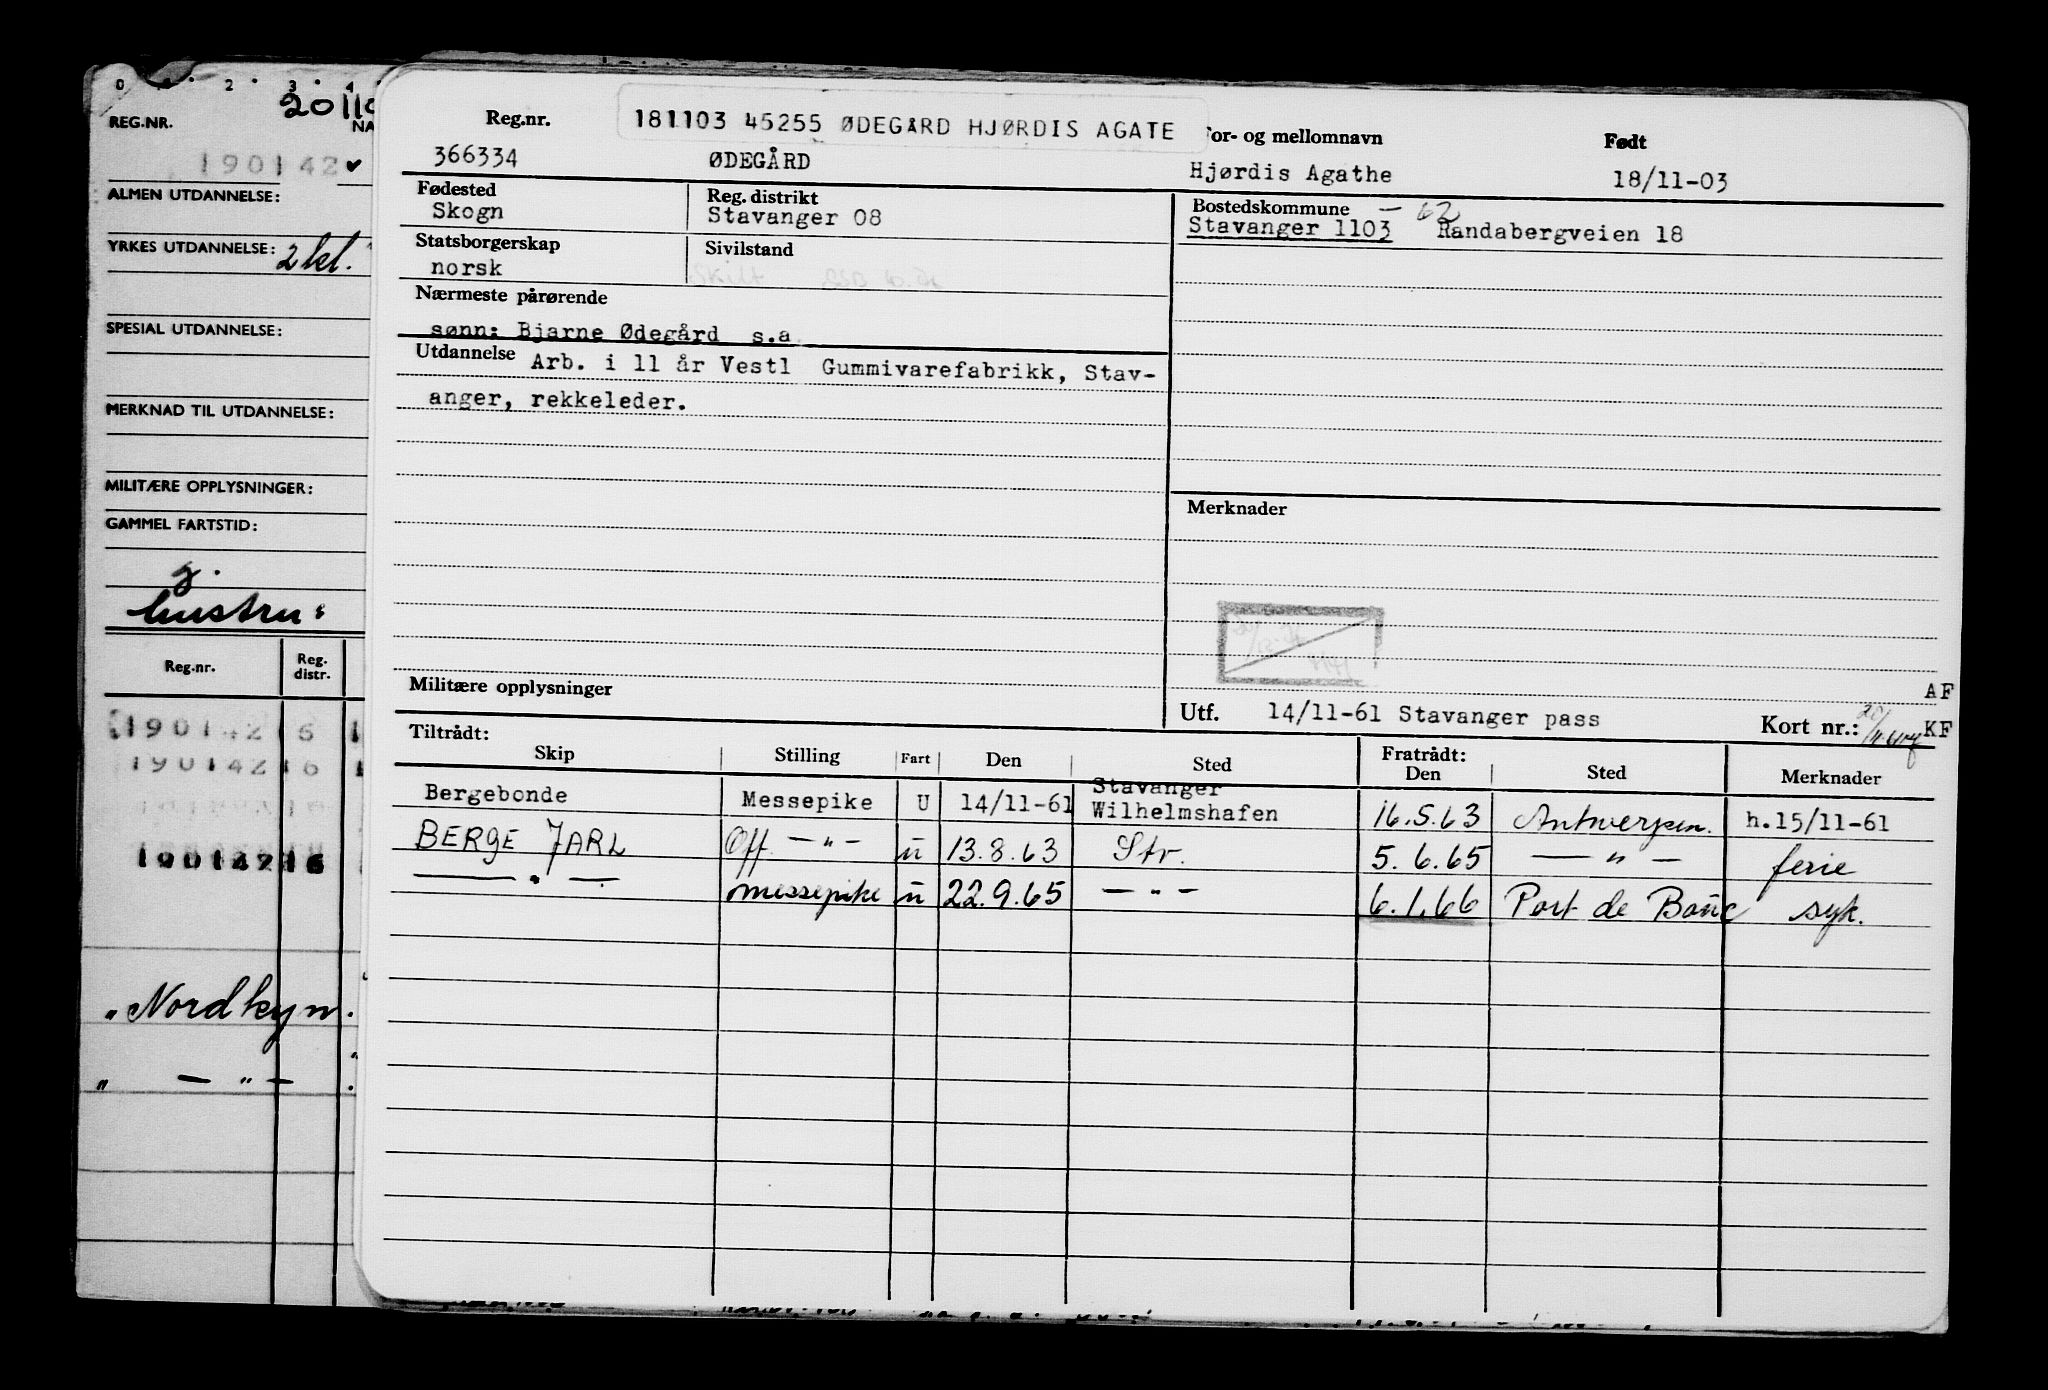 0 2 3 4
20110
REG.NR.
NA
190142
ALMEN UTDANNELSE:
YRKES UTDANNELSE: 2 kl.
SPESIAL UTDANNELSE:
MERKNAD TIL UTDANNELSE:
MILITÆRE OPPLYSNINGER:
GAMMEL FARTSTID:
g.
hustru:
Reg.nr. Reg. distr.
190142 6 1
190142 6
190142 16
"Nordkyn.
" — " —
181103 45255 ØDEGÅRD HJØRDIS AGATE
Reg.nr. For- og mellomnavn Født
366334 ØDEGÅRD Hjørdis Agathe 18/11-03
Fødested Reg. distrikt Bostedskommune — 62
Skogn Stavanger 08 Stavanger 1103 Randabergveien 18
Statsborgerskap Sivilstand
norsk Skilt
Nærmeste pårørende
sønn: Bjarne Ødegård s.a
Utdannelse Arb. i 11 år Vestl Gummivarefabrikk, Stav-
anger, rekkeleder.
Merknader
Militære opplysninger
AF
Utf. 14/11-61 Stavanger pass Kort nr.: KF
Tiltrådt: Fratrådt:
Skip Stilling Fart Den Sted Den Sted Merknader
Stavanger
Bergebonde Messepike U 14/11-61 Wilhelmshafen 16.5.63 Antwerpen. h.15/11-61
BERGE JARL Off — " — u 13.8.63 Str. 5.6.65 — " — ferie
— " — messepike u 22.9.65 — " — 6.1.66 Port de Bouc syk.